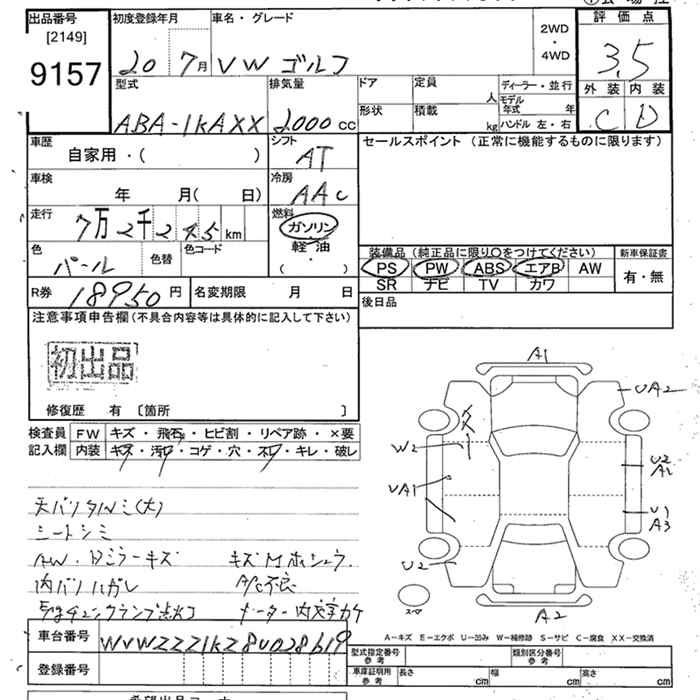 出品番号
[2149]
9157
初度登録年月
20 7月
車名・グレード
VW ゴルフ
2WD
・
4WD
評価点
3.5
外装 内装
C D
型式
ABA-1KAXX
排気量
2000 cc
ドア
形状
定員
人
積載
kg
ディーラー・並行
モデル
年式 年
ハンドル 左・右
車歴
自家用・( )
シフト
AT
セールスポイント (正常に機能するものに限ります)
車検
年 月( 日)
冷房
AAC
走行
7万2千2 km
燃料
ガソリン
軽・油
・
( )
色
パール
色替
色コード
装備品 (純正品に限り○をつけてください)
PS PW ABS エアB AW
SR ナビ TV カワ
新車保証書
有・無
R券
18950円
名変期限 月 日
後日品
注意事項申告欄(不具合内容等は具体的に記入して下さい)
初出品
修復歴 有 [箇所 ]
検査員
記入欄
FW キズ・飛石・ヒビ割・リペア跡・×要
内装 キズ・汚レ・コゲ・穴・スレ・キレ・破レ
天バリタルミ(大)
シートシミ
AW.Dミラーキズ キズMホシュウ
内バリハガレ A/C不良
メーター内文字カケ
A1
UA2
W2
UA1
U2
A1
U1
A3
U2
A2
A-キズ E-エクボ U-凹み W-補修跡 S-サビ C-腐食 XX-交換済
車台番号
WVWZZZ1KZ8U028619
登録番号
型式指定番号
参考
類別区分番号
参考
車庫証明用
参考
長さ cm 幅 cm 高さ cm